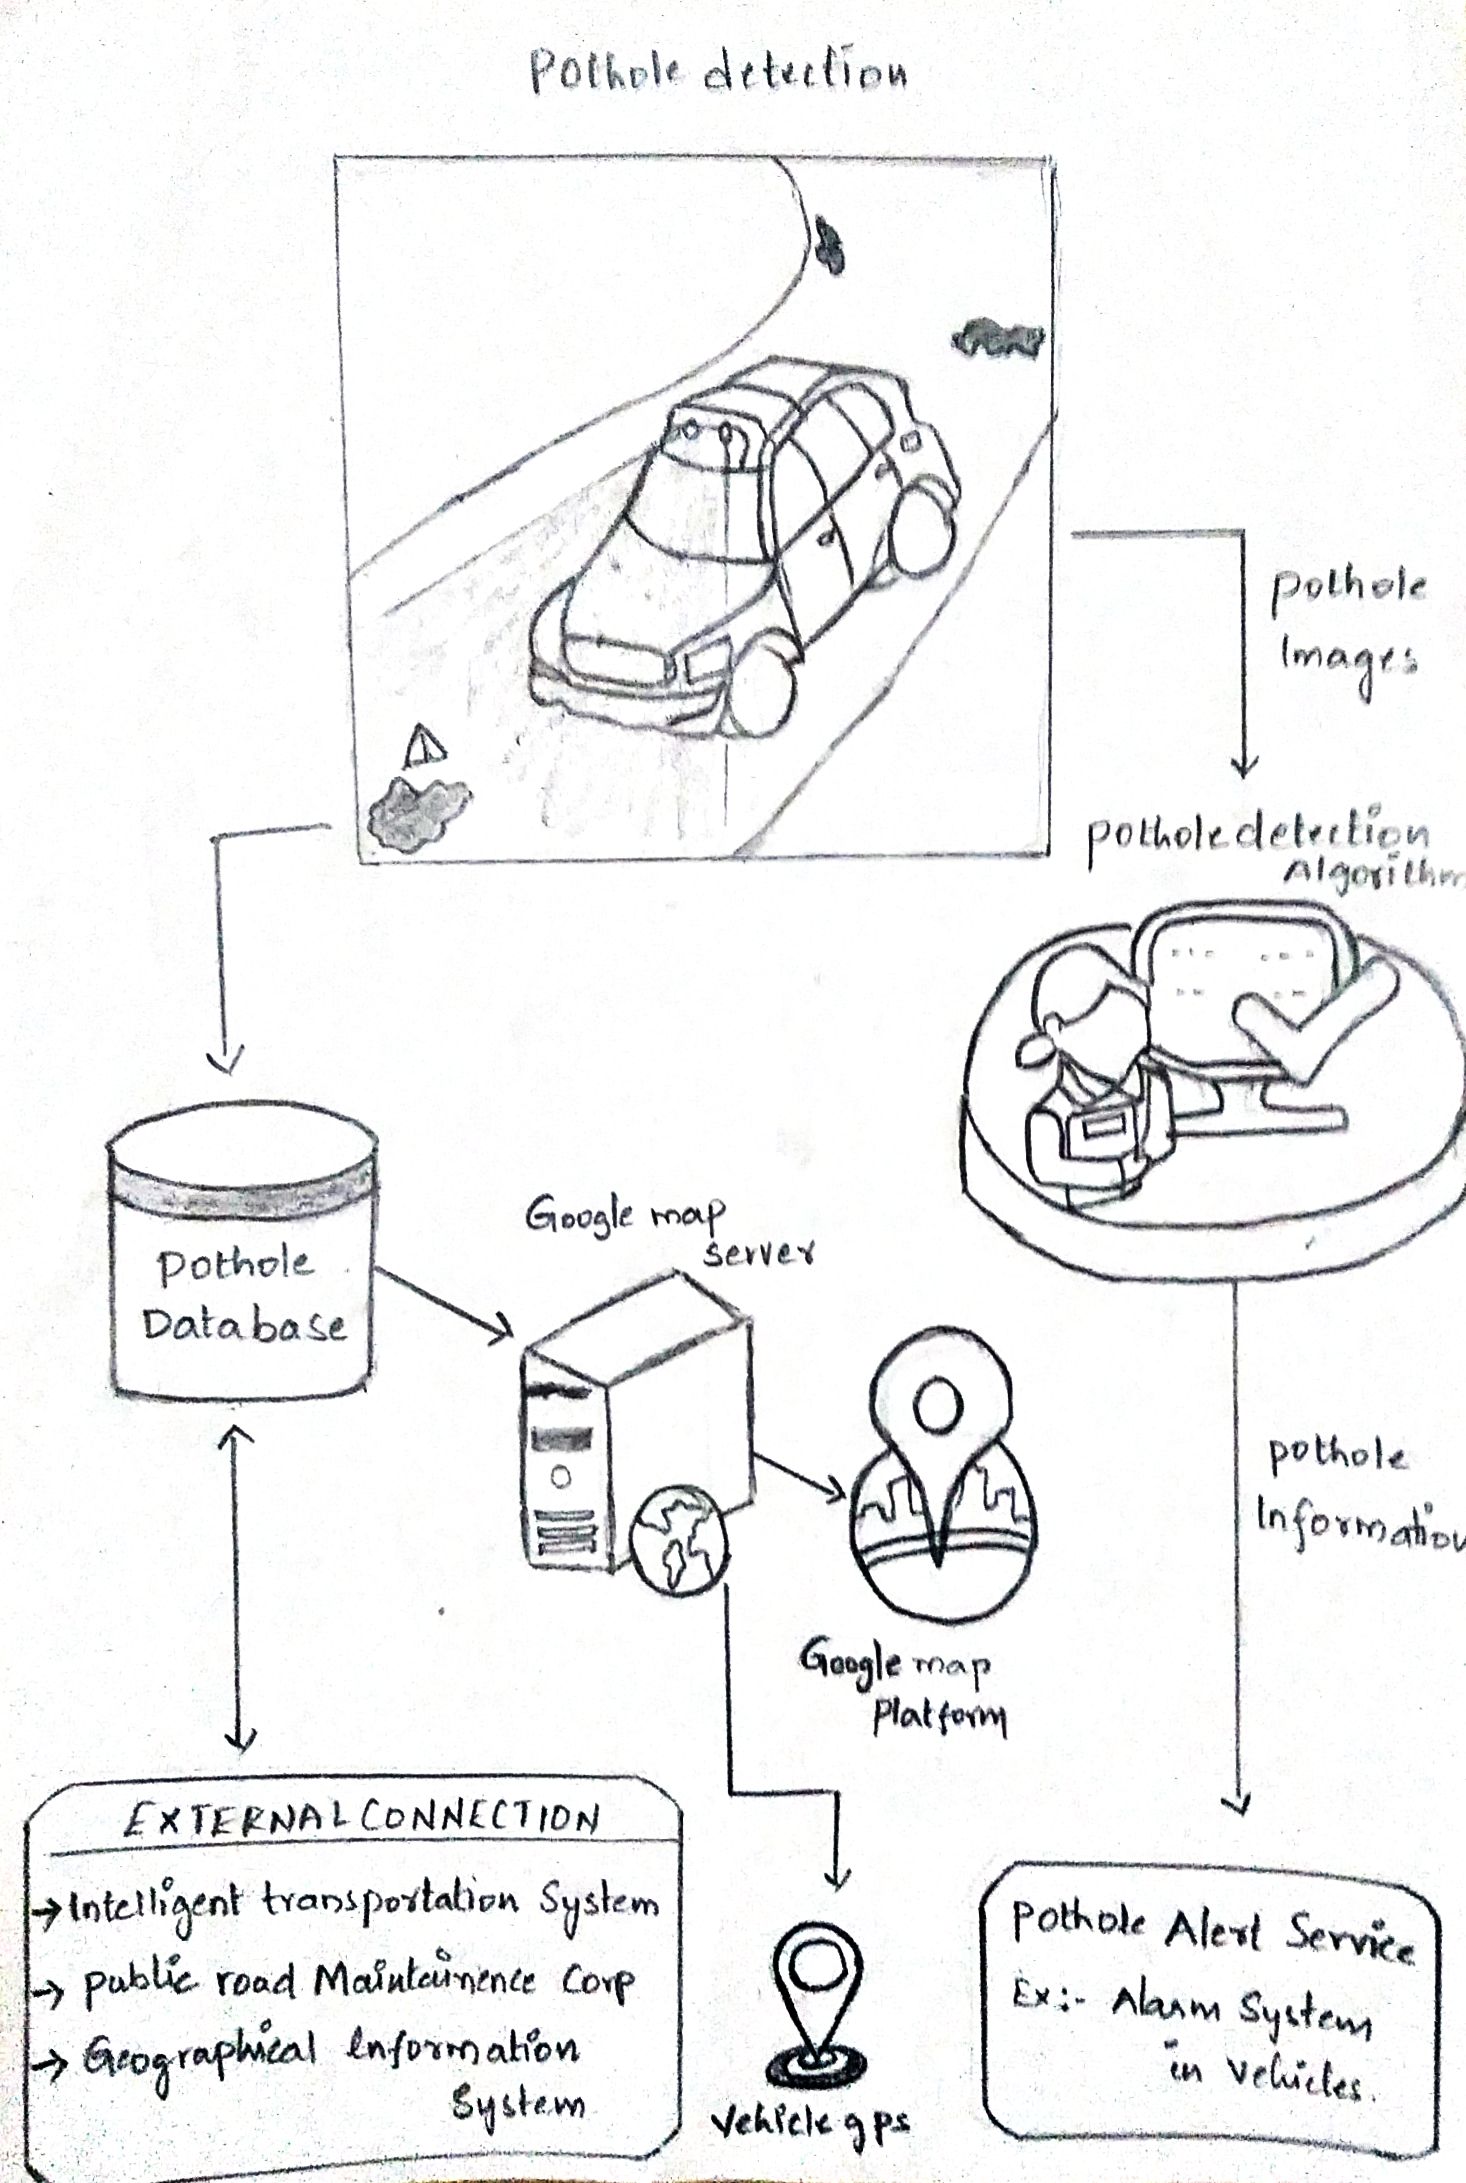 Pothole detection
pothole
Images
pothole detection
Algorithm
Pothole
Database
Google map
server
pothole
Information
Google map
Platform
EXTERNAL CONNECTION
→ Intelligent transportation System
→ public road Maintainence Corp
→ Geographical Information
System
Vehicle gps
Pothole Alert Service
Ex:- Alarm System
in Vehicles.